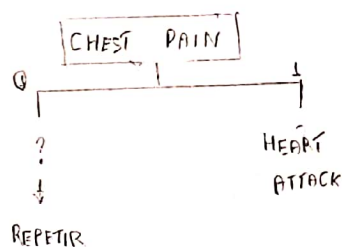 CHEST PAIN
0 1
?
HEART
ATTACK
REPETIR